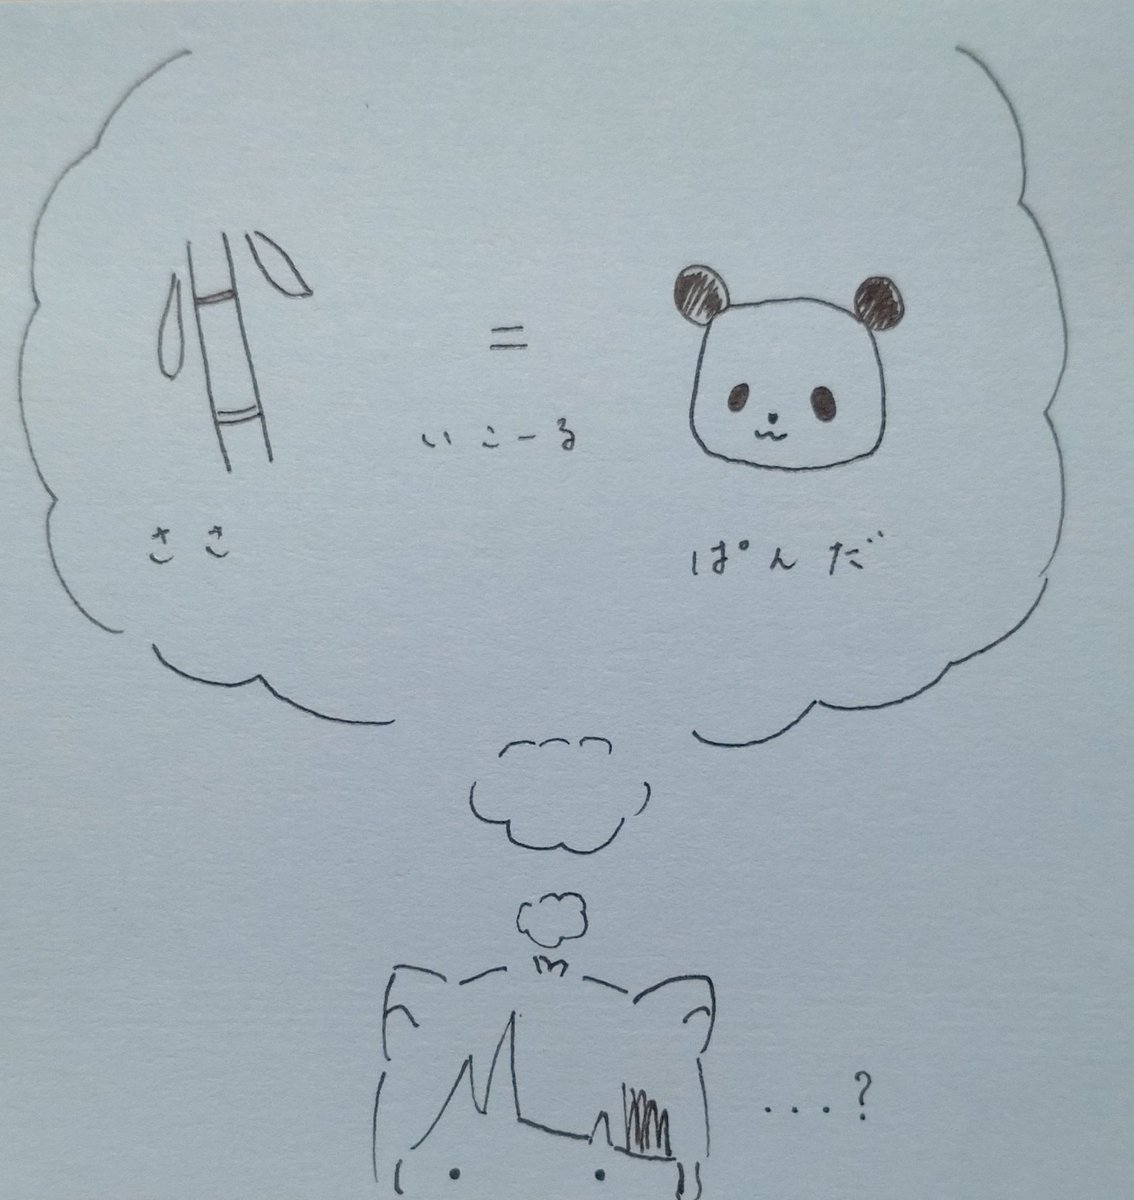 =
いこーる
ささ
ぱんだ
...?